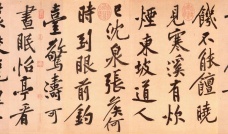 饑不能饘曉
見寒溪有炊
煙東坡道人
已沈泉張侯何
時到眼前釣
臺驚濤可
晝眠怡亭看